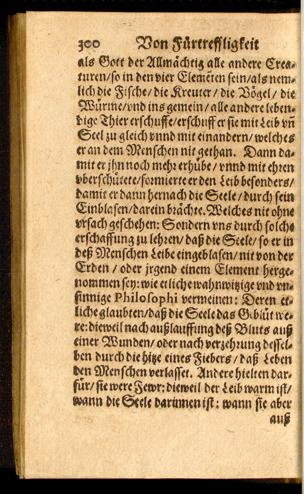 300 Von Fürtreffligkeit
als Gott der Allmächtig alle andere Crea-
turen/so in den vier Elemẽten sein/als nem-
lich die Fische/die Kreuter/die Vögel/die
Würme/vnd ins gemein/alle andere leben-
dige Thier erschuffe/erschuff er sie mit Leib vñ
Seel zu gleich vnnd mit einandern/welches
er an dem Menschen nit gethan. Dann da-
mit er jhn noch mehr erhübe/vnnd mit ehren
vberschütete/formierte er den Leib besonders/
damit er dann hernach die Seele/durch sein
Einblasen/darein brächte. Welches nit ohne
vrsach geschehen: Sondern vns durch solche
erschaffung zu lehren/daß die Seele/so er in
deß Menschen Leibe eingeblasen/nit von der
Erden/oder jrgend einem Element herge-
nommen sey: wie etliche wahnwitzige vnd vn-
sinnige Philosophi vermeinen: Deren et-
liche glaubten/daß die Seele das Geblüt we-
re: dieweil nach außlauffung deß Bluts auß
einer Wunden/oder nach verzehrung dessel-
ben durch die hitze eines Fiebers/daß Leben
den Menschen verlasset. Andere hielten dar-
für/sie were Fewr: dieweil der Leib warm ist/
wann die Seele darinnen ist: wann sie aber
auß